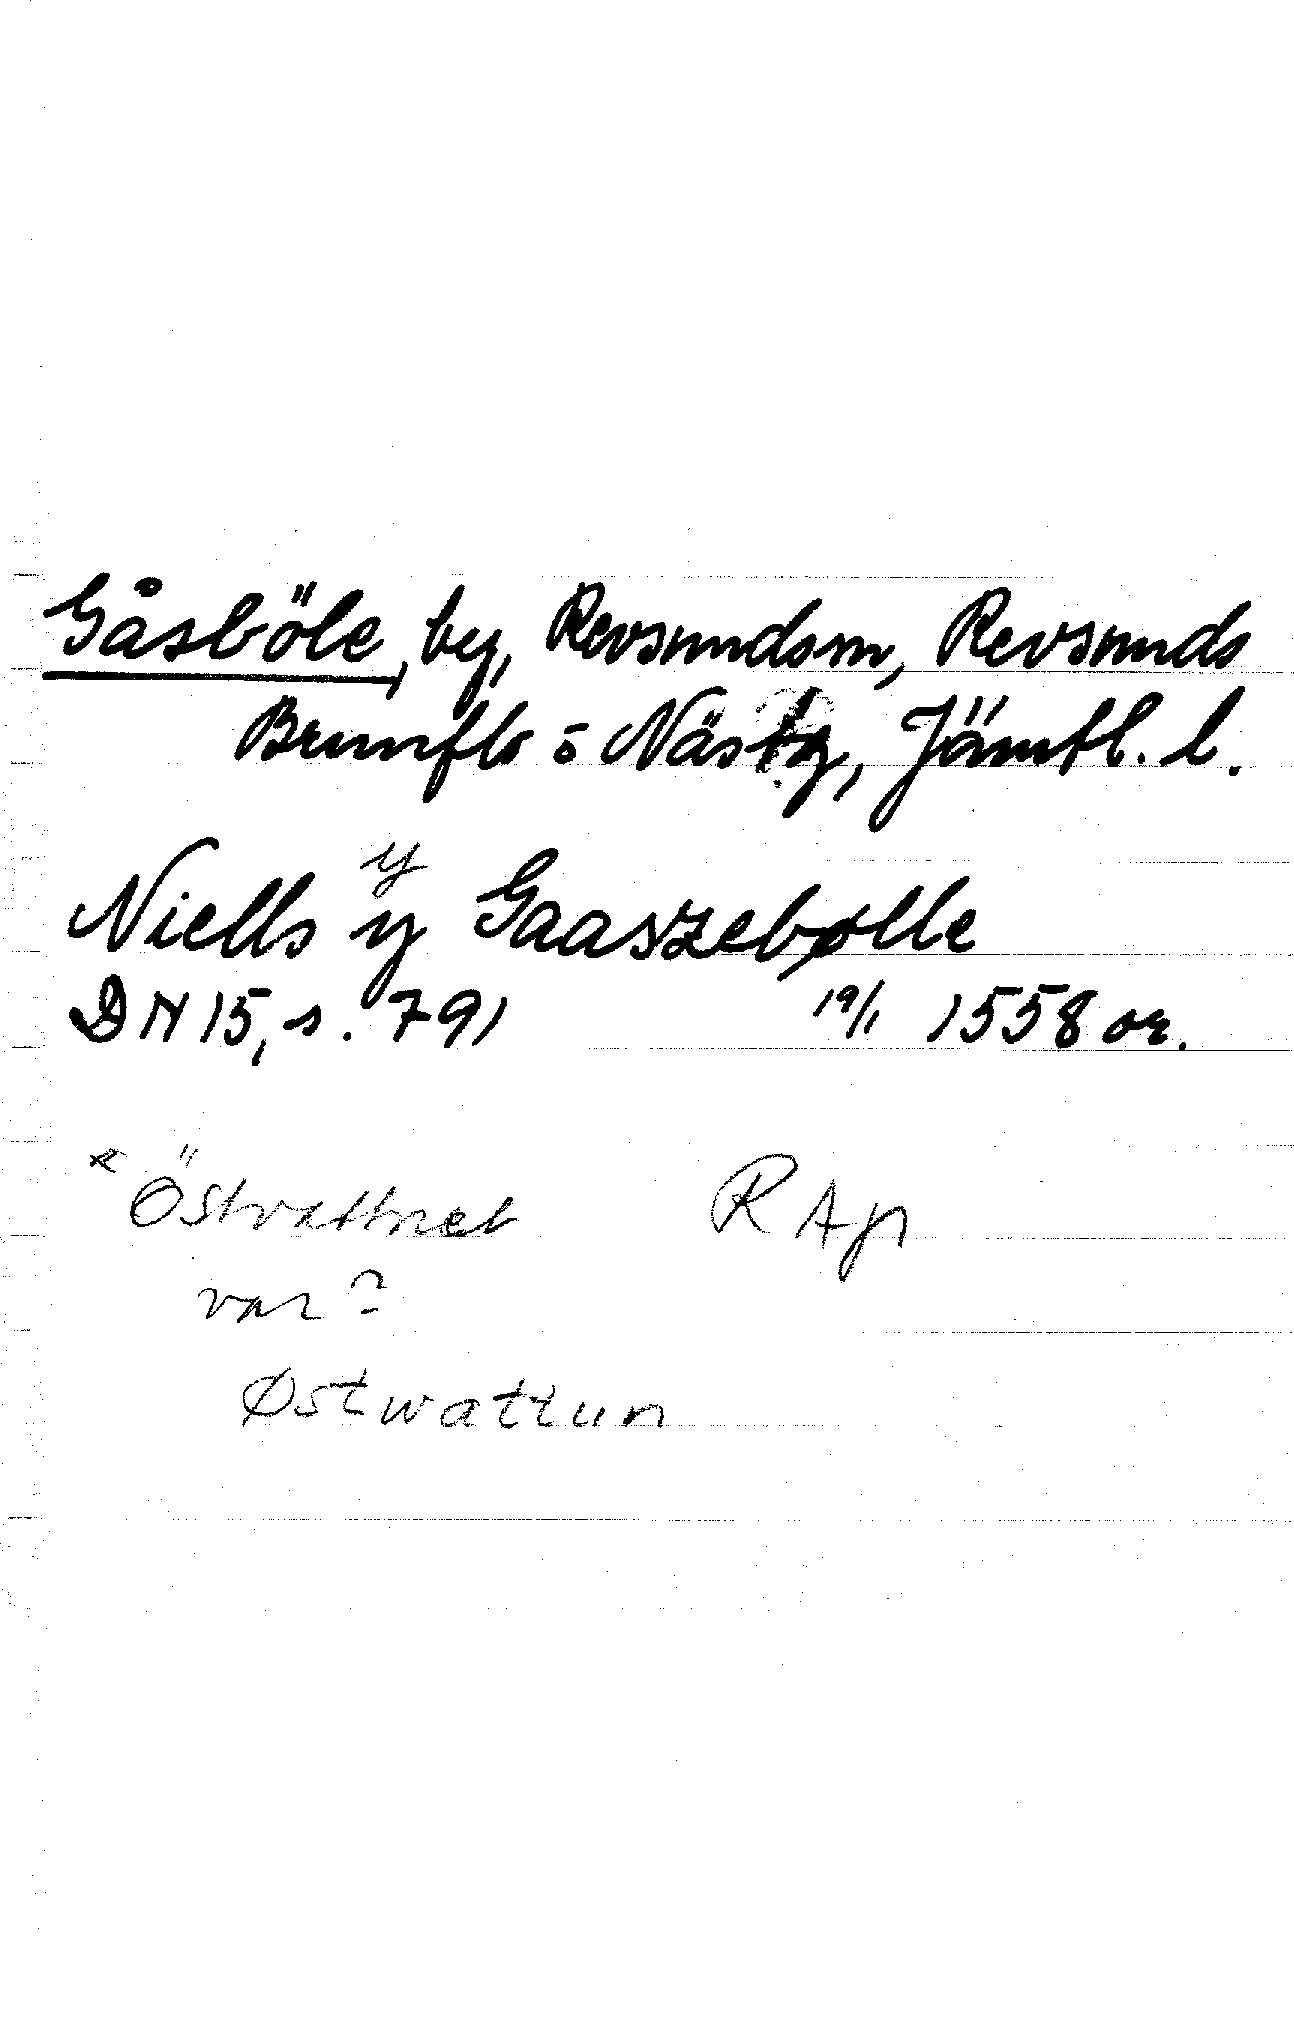 Gåsböle, by, Revsundsm, Revsunds
Brunflo o Näs tg, Jämtl. l.
y
Niells y Gaaszebølle
DN 15, s. 791 19/1 1558 or.
* Östvattnet R Ap
var?
Østwattun